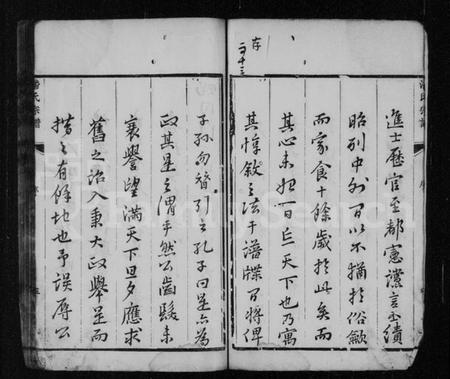 存
二 十三
進士歷官至都憲讜言丕績
昭列中外百以不猶於俗歛
而家食十餘歲於此矣而
其心未一日忘天下也乃寓
其惇敘之法于譜牒百將俾
子孫勿替引之孔子曰是亦為
政其是之謂乎然公齒髮未
衰譽望滿天下旦夕應求
舊之詔入秉大政舉是而
措之有餘地也予誤辱公
潘氏宗譜
序